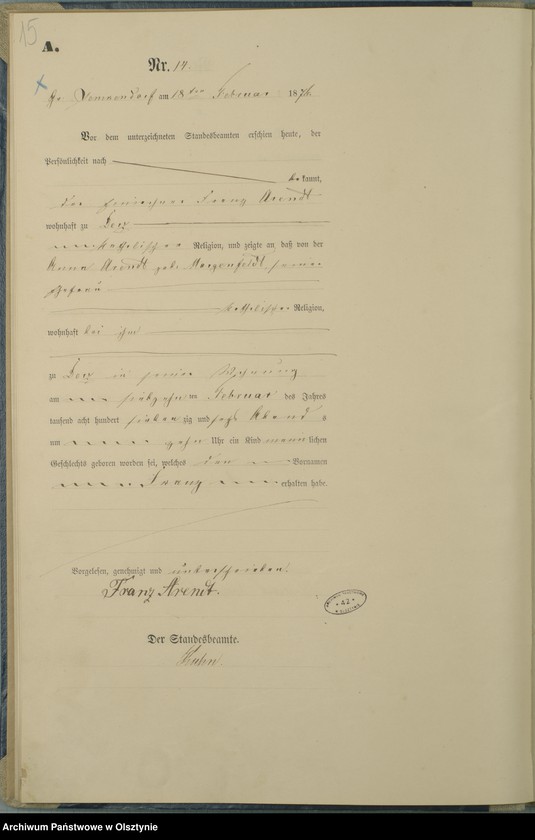 15
A.
Nr. 14.
Gr. am 18ten Februar 1876
Vor dem unterzeichneten Standesbeamten erschien heute, der
Persönlichkeit nach
bekannt,
der Franz Arendt
wohnhaft zu
katholischer Religion, und zeigte an, daß von der
Anna Arendt geb. seiner
Ehefrau
katholischer Religion,
wohnhaft bei ihm
zu in seiner Wohnung
am ten Februar des Jahres
tausend acht hundert sieben zig und sechs Abends
um zehn Uhr ein Kind männlichen
Geschlechts geboren worden sei, welches den Vornamen
Franz erhalten habe.
Vorgelesen, genehmigt und unterschrieben.
Franz Arendt.
Der Standesbeamte.
42
Archiwum Państwowe w Olsztynie